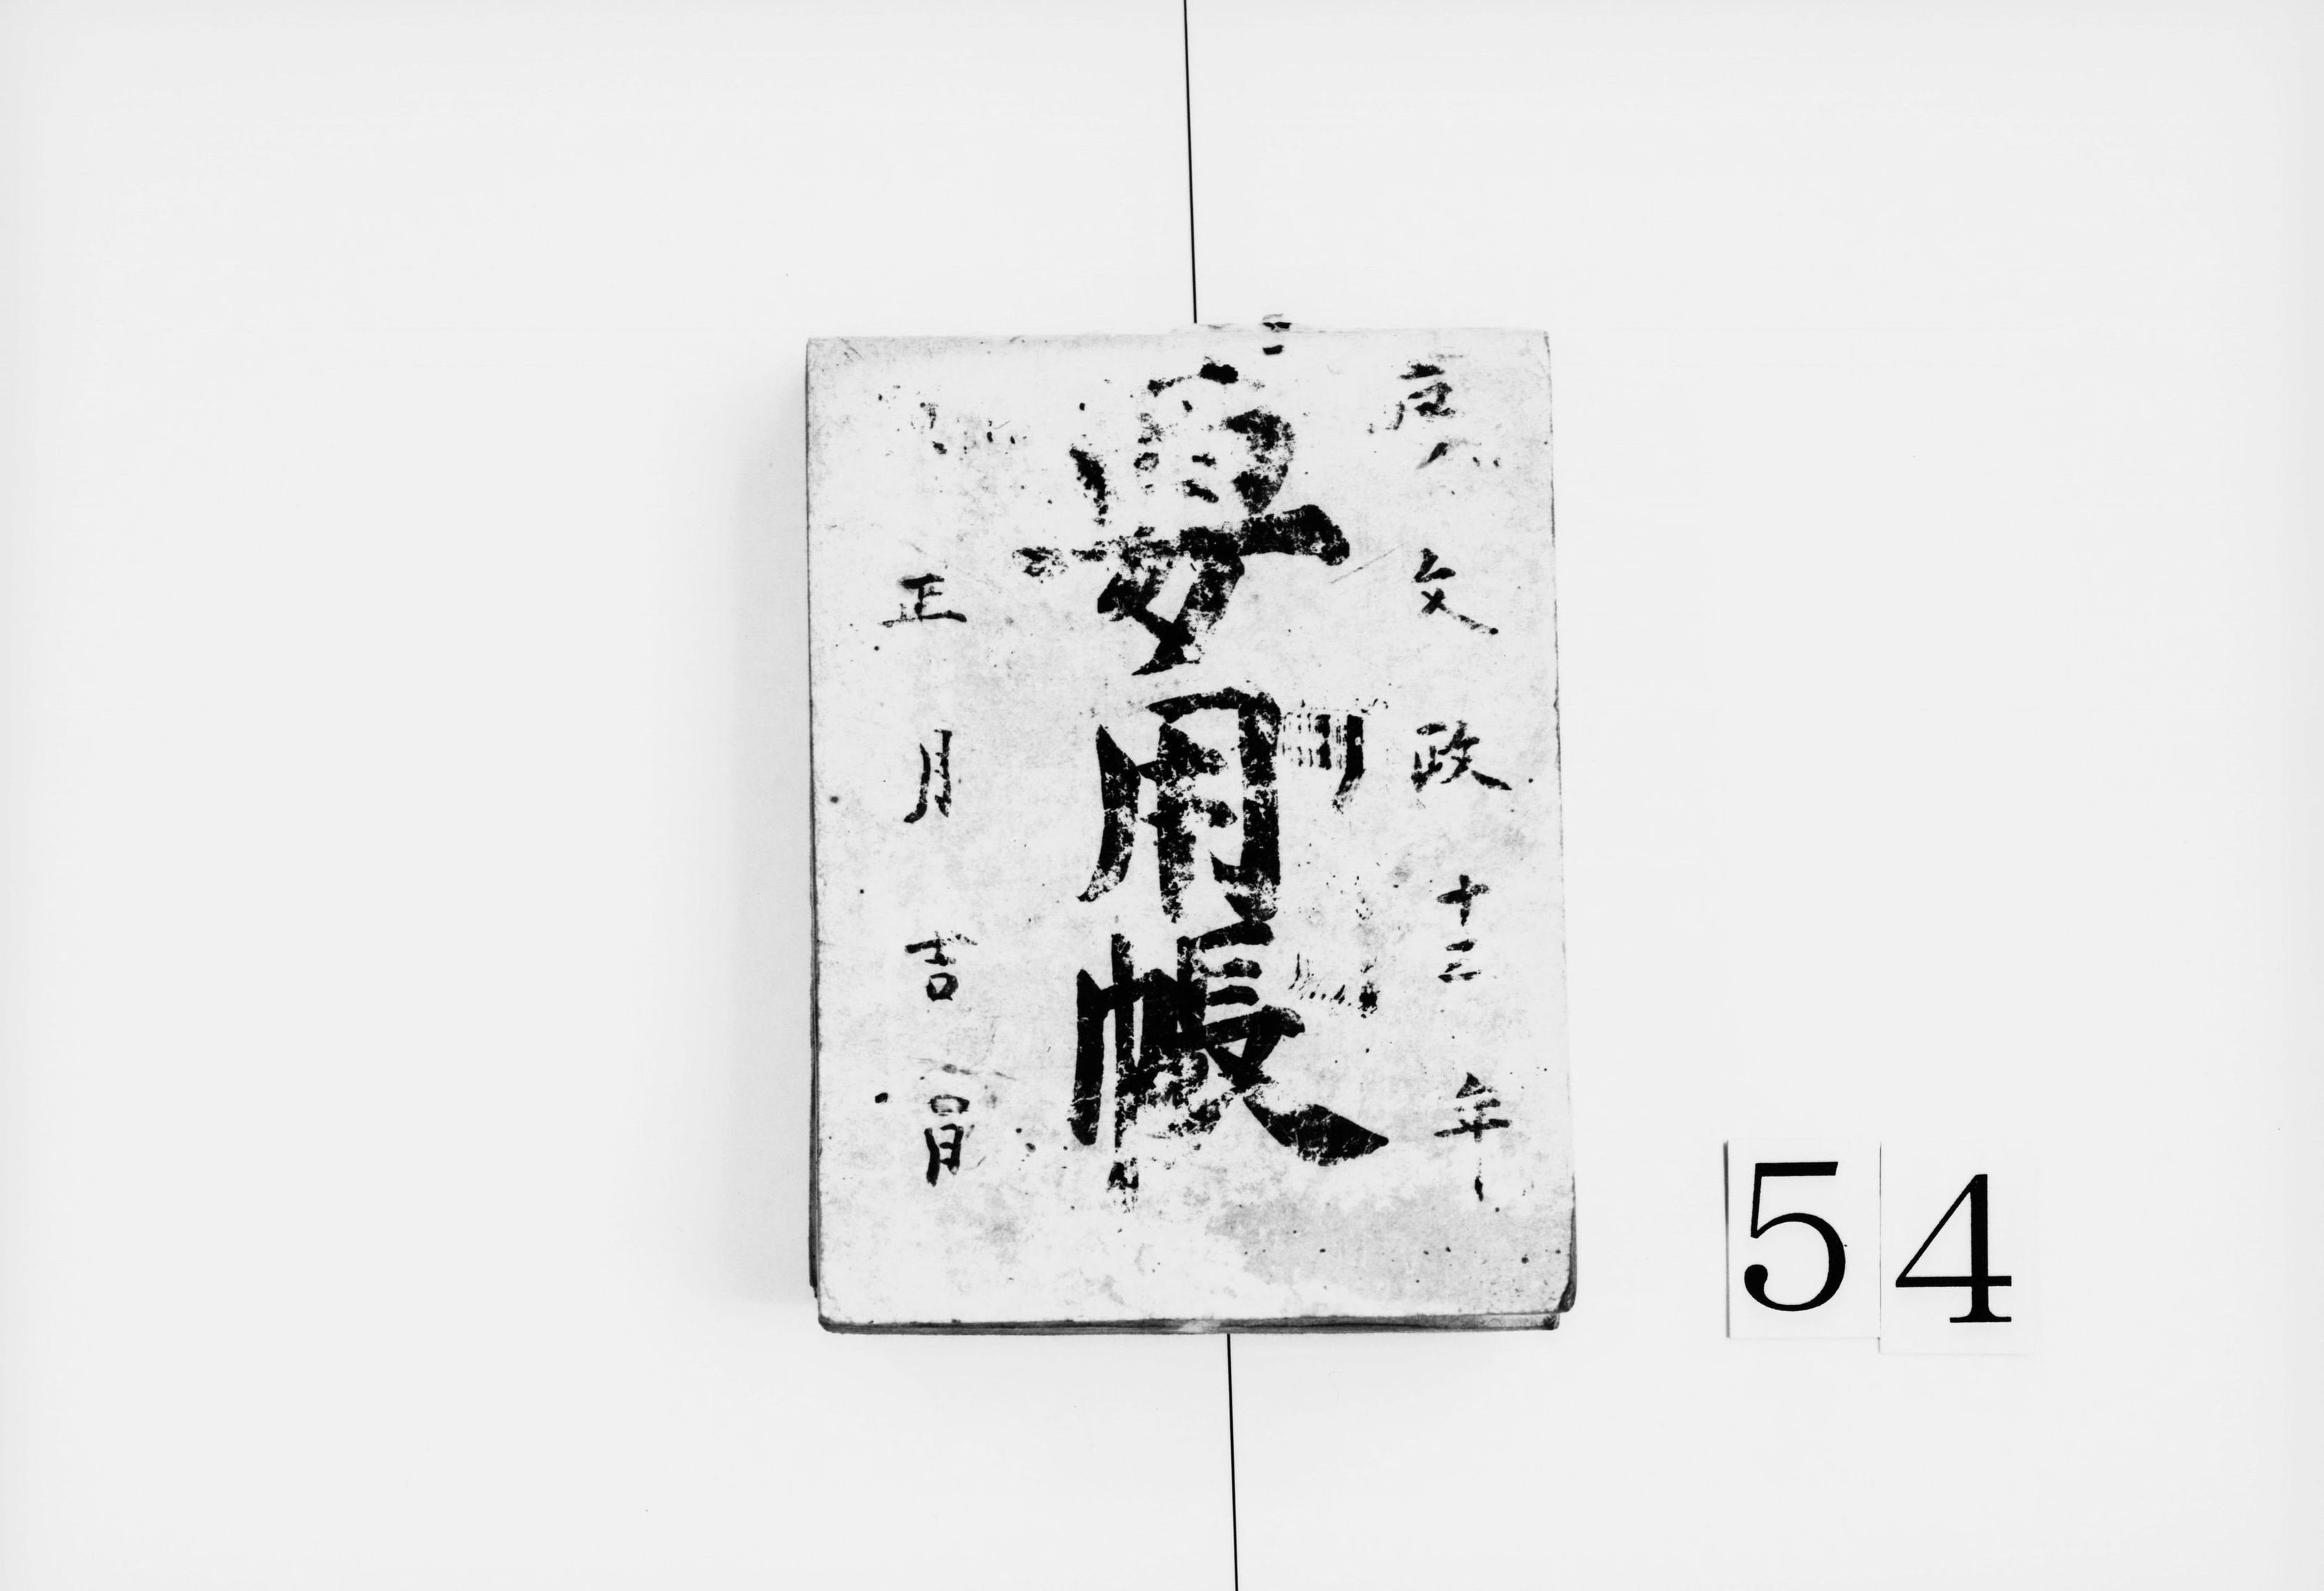 庚
文政十三年
要用帳
正月吉日
54